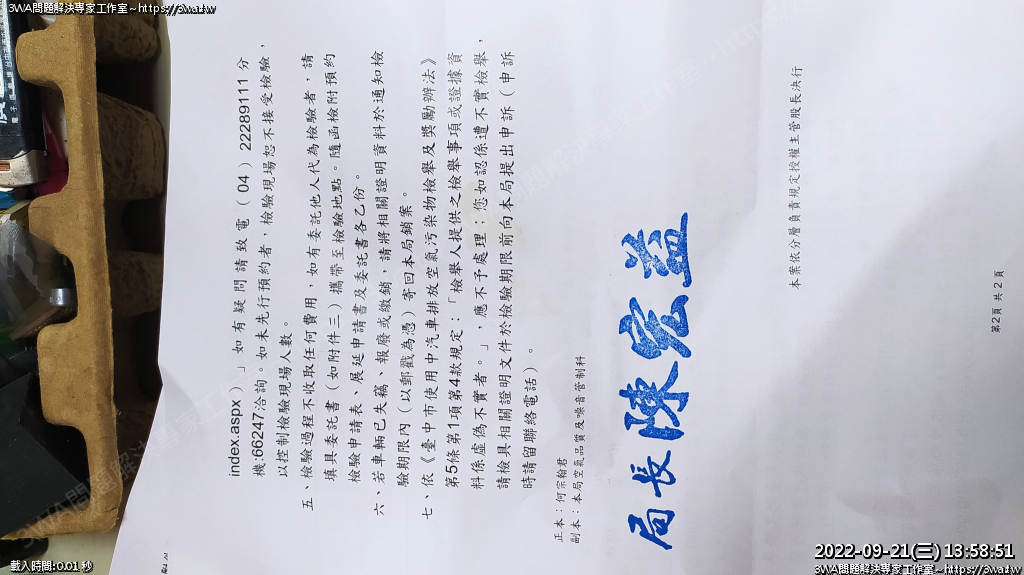 3WA問題解決專家工作室~https://3wa.tw
3WA問題解決專家工作室~https://3wa.tw
index.aspx）。」如有疑問請致電（04）22289111分
機:66247洽詢。如未先行預約者，檢驗現場恕不接受檢驗，
以控制檢驗現場人數。
五、檢驗過程不收取任何費用，如有委託他人代為檢驗者，請
填具委託書（如附件三）攜帶至檢驗地點。隨函檢附預約
檢驗申請表、展延申請書及委託書各乙份。
六、若車輛已失竊、報廢或繳銷，請將相關證明資料於通知檢
驗期限內（以郵戳為憑）寄回本局銷案。
七、依《臺中市使用中汽車排放空氣污染物檢舉及獎勵辦法》
第5條第1項第4款規定：「檢舉人提供之檢舉事項或證據資
料係虛偽不實者。」，應不予處理；您如認係遭不實檢舉，
請檢具相關證明文件於檢驗期限前向本局提出申訴（申訴
時請留聯絡電話）。
正本：何宗翰君
副本：本局空氣品質及噪音管制科
局長陳宏益
本案依分層負責規定授權主管股長決行
第2頁 共2頁
載入時間:0.01 秒
2022-09-21(三) 13:58:51
3WA問題解決專家工作室~https://3wa.tw